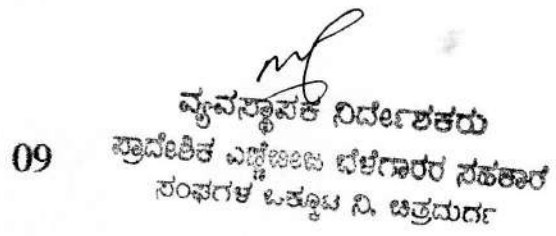 ವ್ಯವಸ್ಥಾಪಕ ನಿರ್ದೇಶಕರು
09 ಪ್ರಾದೇಶಿಕ ಎಣ್ಣೆಬೀಜ ಬೆಳೆಗಾರರ ಸಹಕಾರ
ಸಂಘಗಳ ಒಕ್ಕೂಟ ನಿ. ಚಿತ್ರದುರ್ಗ